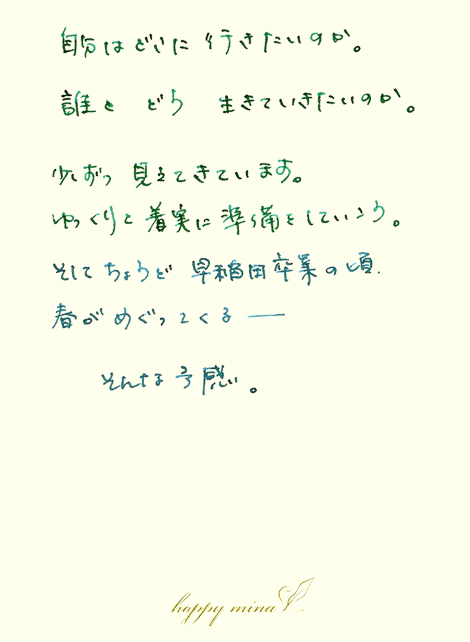 自分はどこに行きたいのか。
誰と どう 生きていきたいのか。
少しずつ 見えてきています。
ゆっくりと着実に準備をしていこう。
そしてちょうど 早稲田卒業の頃.
春がめぐってくる ──
そんな予感。
happy mina